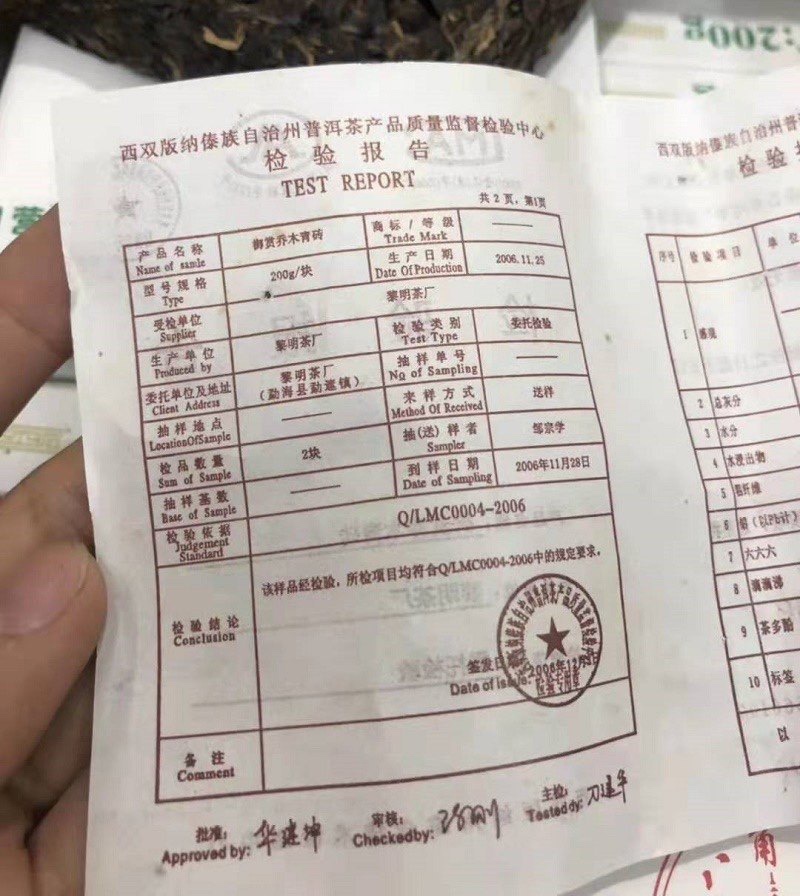 :200g
西双版纳傣族自治州普洱茶产品质量监督检验中心
检验报告
TEST REPORT
共 2 页，第1页
产品名称 御赏乔木青砖 商标/等级 ——
Name of samle Trade Mark
型号规格 200g/块 生产日期 2006.11.25
Type Date Of Production
受检单位 黎明茶厂
Supplier
生产单位 黎明茶厂 检验类别 委托检验
Produced by Test Type
委托单位及地址 黎明茶厂 抽样单号 ——
Client Address (勐海县勐遮镇) No of Sampling
抽样地点 —— 来样方式 送样
LocationOfSample Method Of Received
检品数量 2块 抽(送)样者 邹宗学
Sum of Sample Sampler
抽样基数 —— 到样日期 2006年11月28日
Base of Sample Date of Sampling
检验依据 Q/LMC0004-2006
Judgement
Standard
检验结论 该样品经检验，所检项目均符合Q/LMC0004-2006中的规定要求。
Conclusion
签发日 2006年12月
Date of issue
检验专用章
备注
Comment
批准： 华建坤 审核： 主检： 刀建华
Approved by: Checkedby: Tested dy:
西双版纳傣族自治州普
检验
序号 检验项目 单位
1 感观
2 总灰分
3 水分
4 水浸出物
5 粗纤维
6 铅（以Pb计）
7 六六六
8 滴滴涕
9 茶多酚
10 标签
以
八